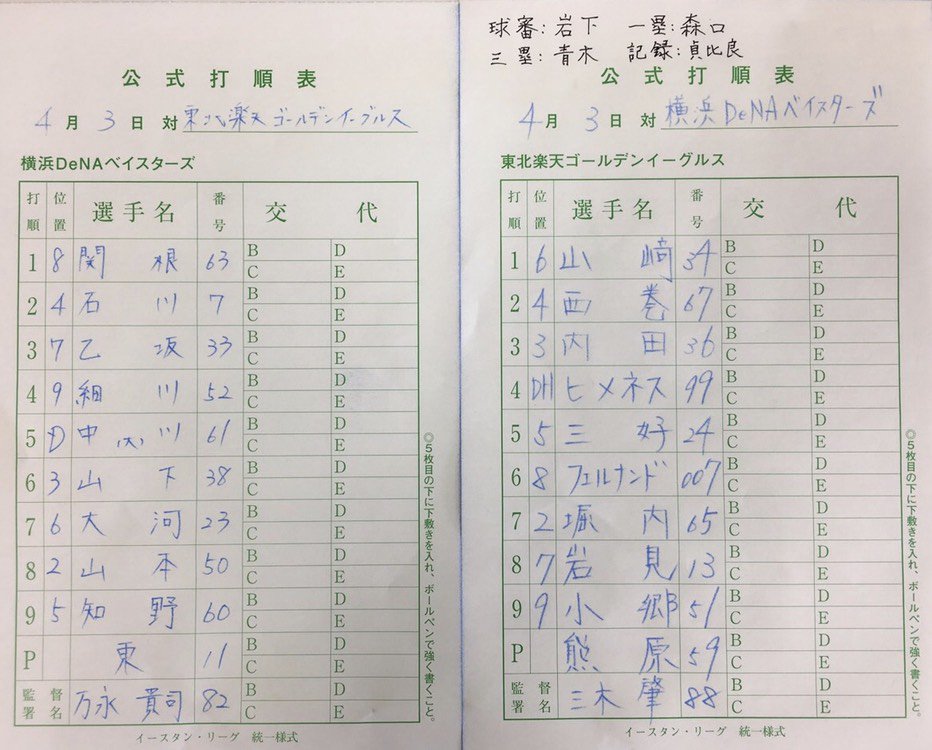 公式打順表
4月3日対 東北楽天ゴールデンイーグルス
横浜DeNAベイスターズ
打順 位置 選手名 番号 交代
1 8 関根 63 B D C E
2 4 石川 7 B D C E
3 7 乙坂 33 B D C E
4 9 細川 52 B D C E
5 D 中川(大) 61 B D C E
6 3 山下 38 B D C E
7 6 大河 23 B D C E
8 2 山本 50 B D C E
9 5 知野 60 B D C E
P 東 11 B D C E
監督署名 万永貴司 82 B D C E
イースタン・リーグ 統一様式
◎5枚目の下に下敷きを入れ、ボールペンで強く書くこと。
球審:岩下 一塁:森口
三塁:青木 記録:貞比良
公式打順表
4月3日対 横浜DeNAベイスターズ
東北楽天ゴールデンイーグルス
打順 位置 選手名 番号 交代
1 6 山﨑 34 B D C E
2 4 西巻 67 B D C E
3 3 内田 36 B D C E
4 DH ヒメネス 99 B D C E
5 5 三好 24 B D C E
6 8 フェルナンド 007 B D C E
7 2 堀内 65 B D C E
8 7 岩見 13 B D C E
9 9 小郷 51 B D C E
P 熊原 59 B D C E
監督署名 三木肇 88 B D C E
イースタン・リーグ 統一様式
◎5枚目の下に下敷きを入れ、ボールペンで強く書くこと。